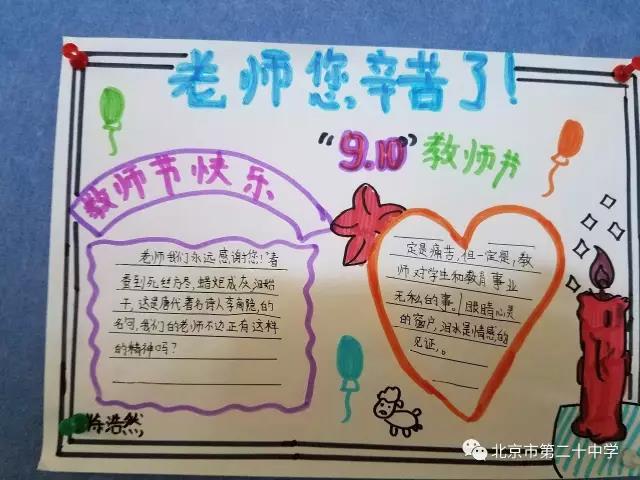 老师您辛苦了!
"9.10"教师节
教师节快乐
老师我们永远感谢您!"春
蚕到死丝方尽,蜡炬成灰泪始
干,这是唐代著名诗人李商隐,的
名句,我们的老师不边正有这样
的精神吗?
定是痛苦,但一定是,教
师对学生和教育事业
无私的事。眼睛心灵
的窗户,泪水是情感,的
见证,。
陈浩然
北京市第二十中学